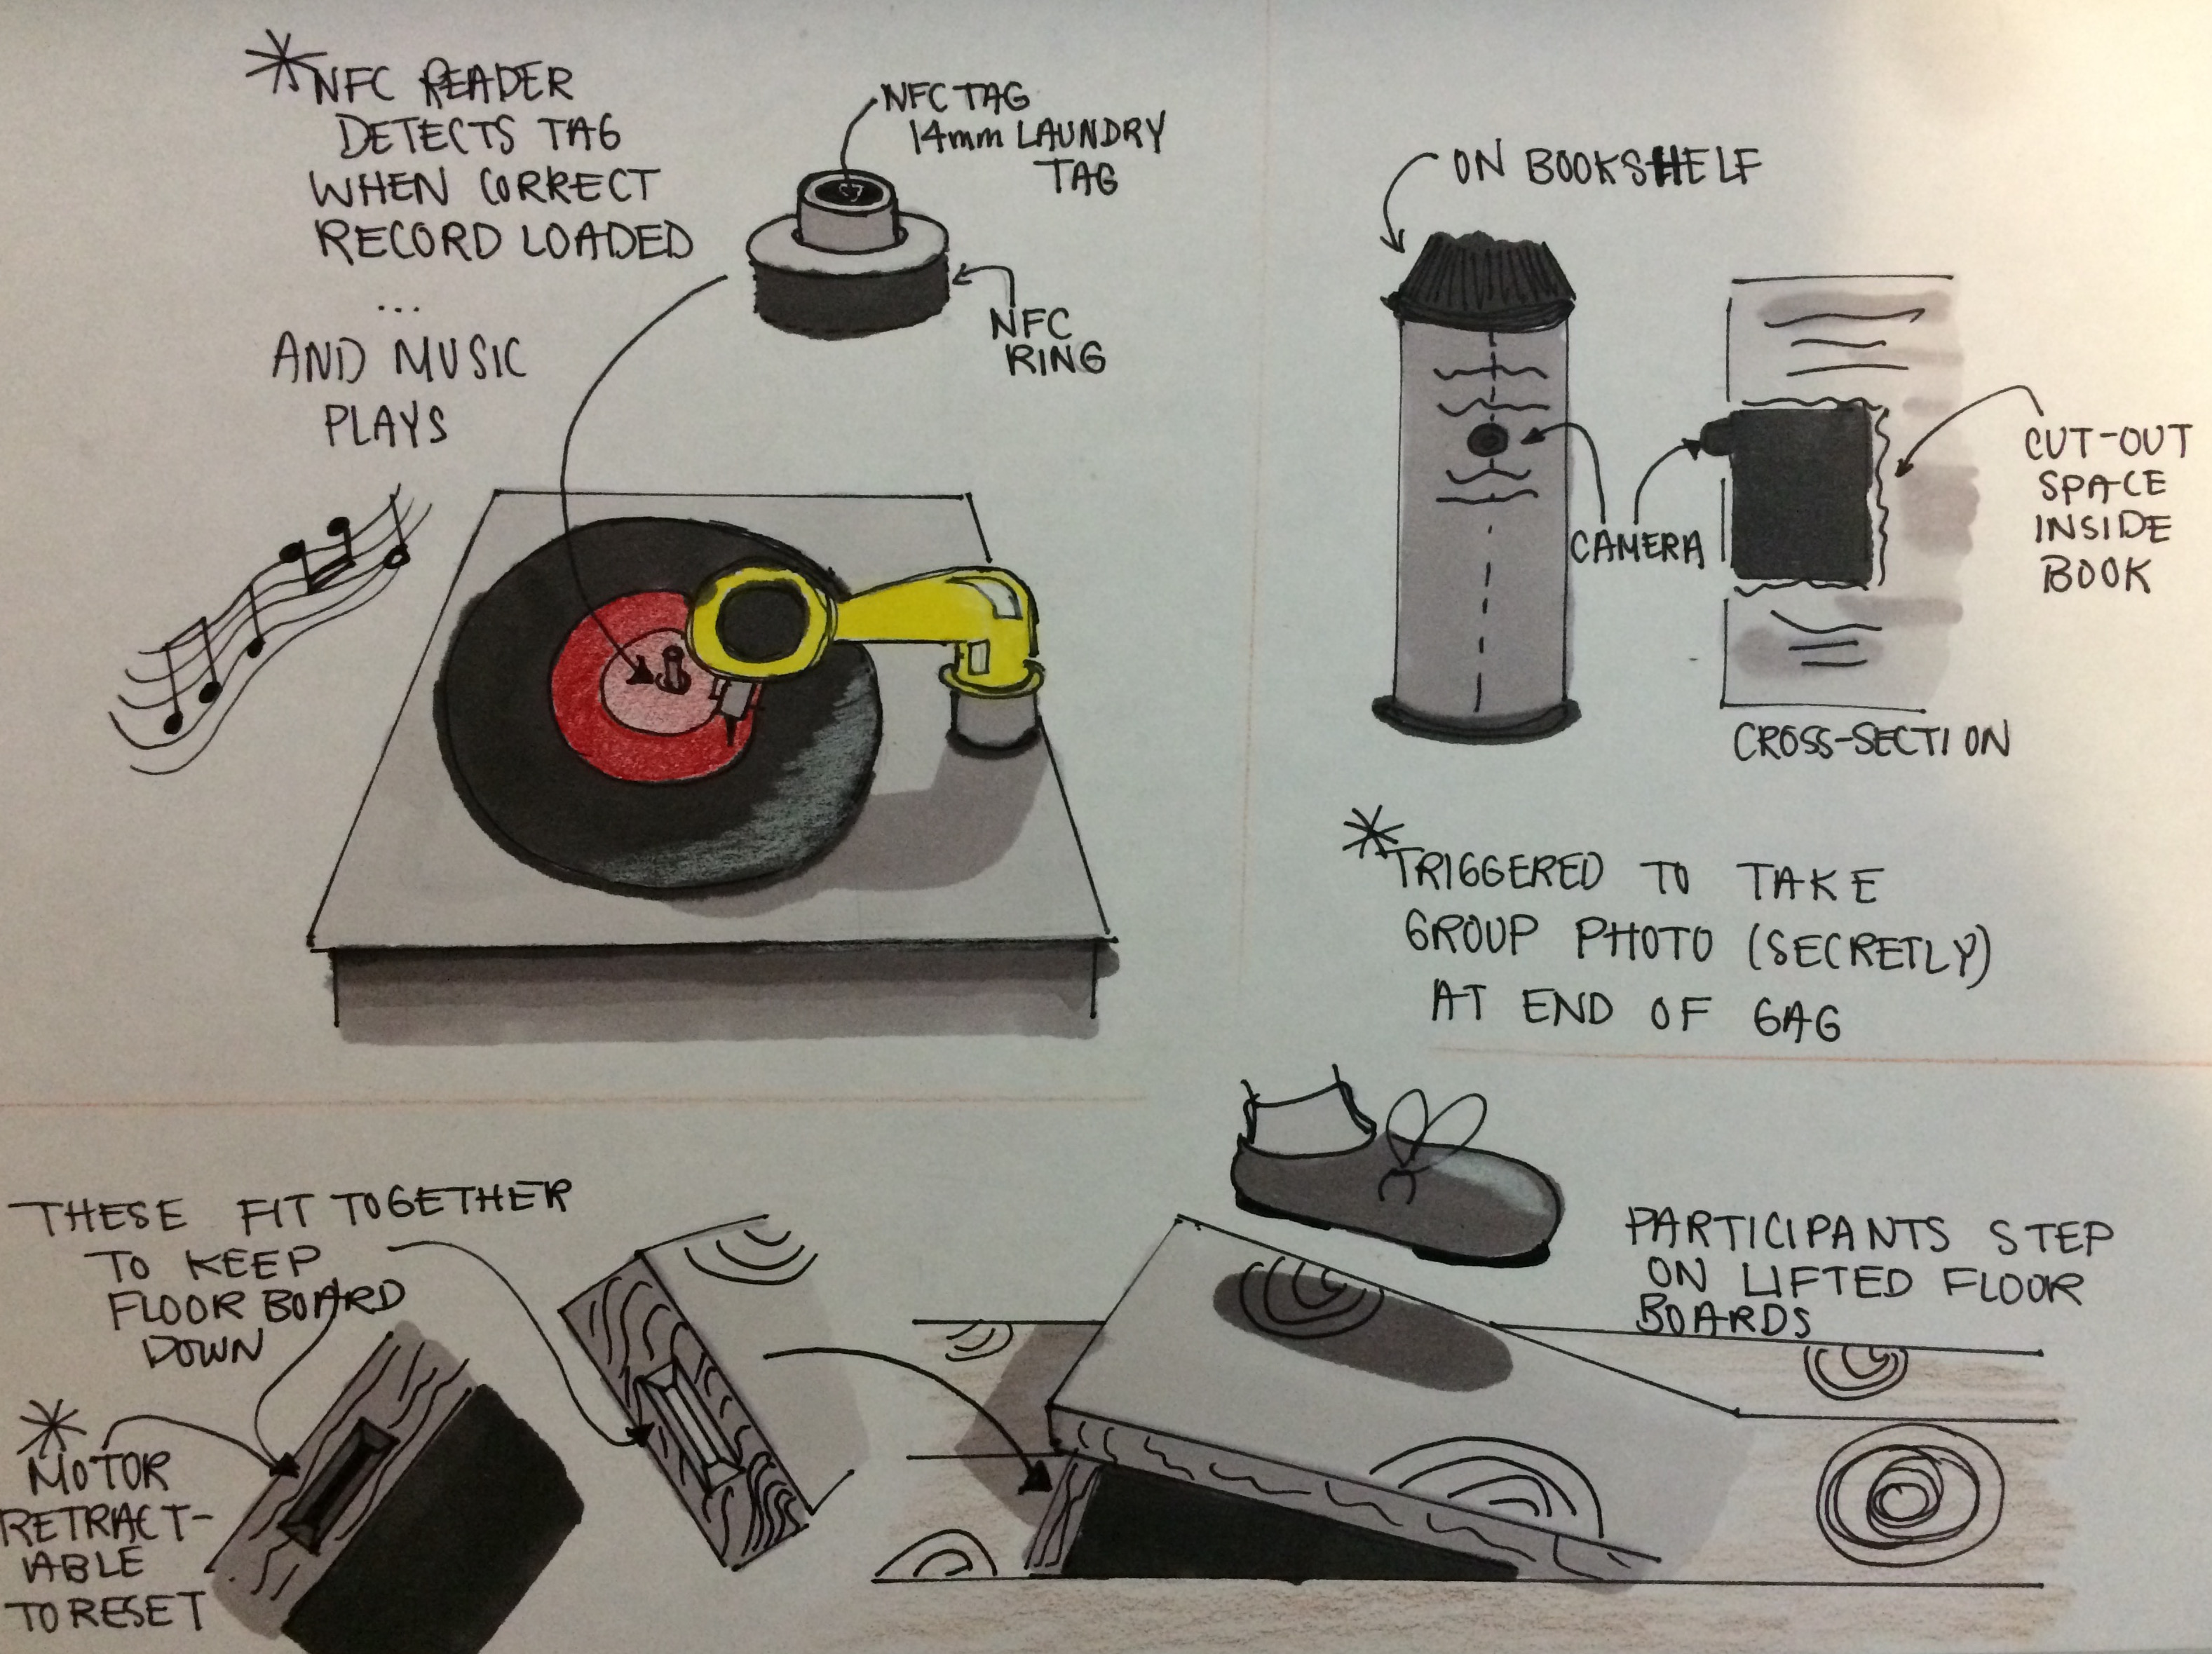 *NFC READER
DETECTS TAG
WHEN CORRECT
RECORD LOADED
...
AND MUSIC
PLAYS
NFC TAG
14mm LAUNDRY
TAG
NFC
RING
ON BOOKSHELF
CAMERA
CUT-OUT
SPACE
INSIDE
BOOK
CROSS-SECTION
*TRIGGERED TO TAKE
GROUP PHOTO (SECRETLY)
AT END OF GAG
THESE FIT TOGETHER
TO KEEP
FLOOR BOARD
DOWN
*MOTOR
RETRACT-
ABLE
TO RESET
PARTICIPANTS STEP
ON LIFTED FLOOR
BOARDS